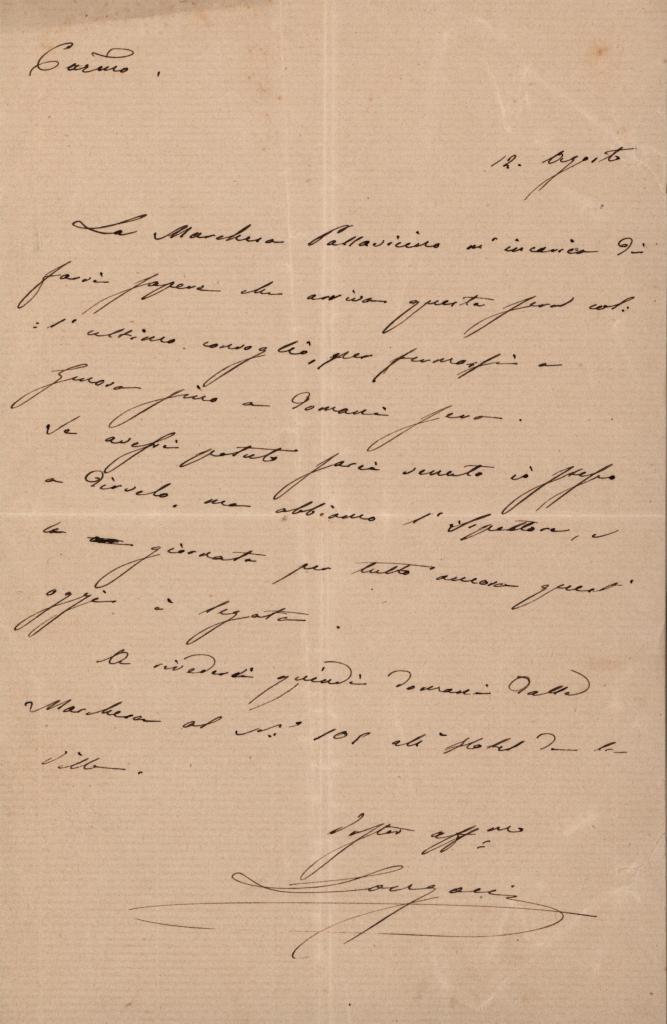 Carmo.
12. Agosto
La Marchesa Pallavicino m'incarica di
farvi sapere che arriva questa sera col:
:l'ultimo convoglio, per fermarsi a
Genova sino a domani sera.
Se avessi potuto saria venuto io stesso
a dirvelo, ma abbiamo l'Ispettore, e
la giornata per tutto ancora quest'
oggi è legata.
A rivederci quindi domani dalla
Marchesa al N.º 105 all'Hotel de la
Ville.
Vostro affmo